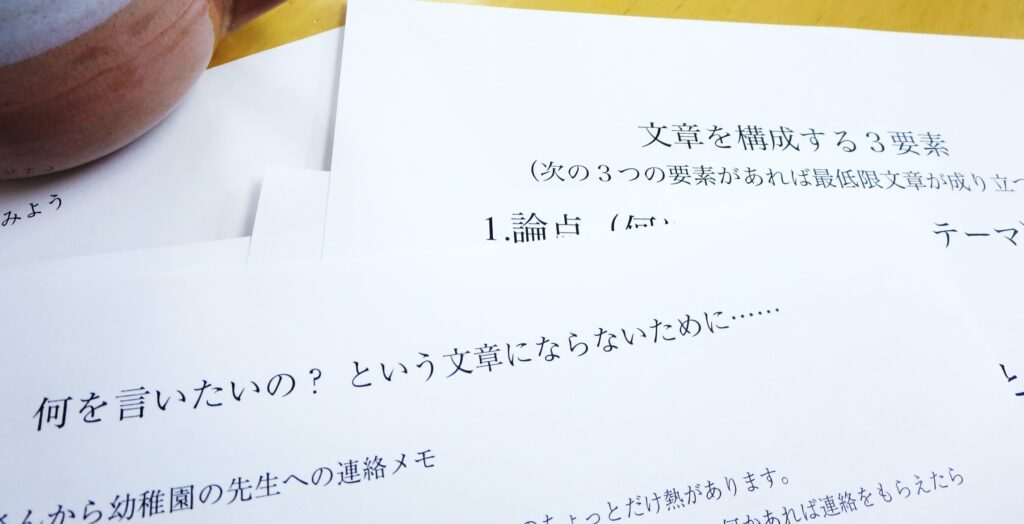 みよう
文章を構成する３要素
(次の３つの要素があれば最低限文章が成り立つ
1.論点（何
テーマ
何を言いたいの？ という文章にならないために……
さんから幼稚園の先生への連絡メモ
ちょっとだけ熱があります。
何かあれば連絡をもらえたら